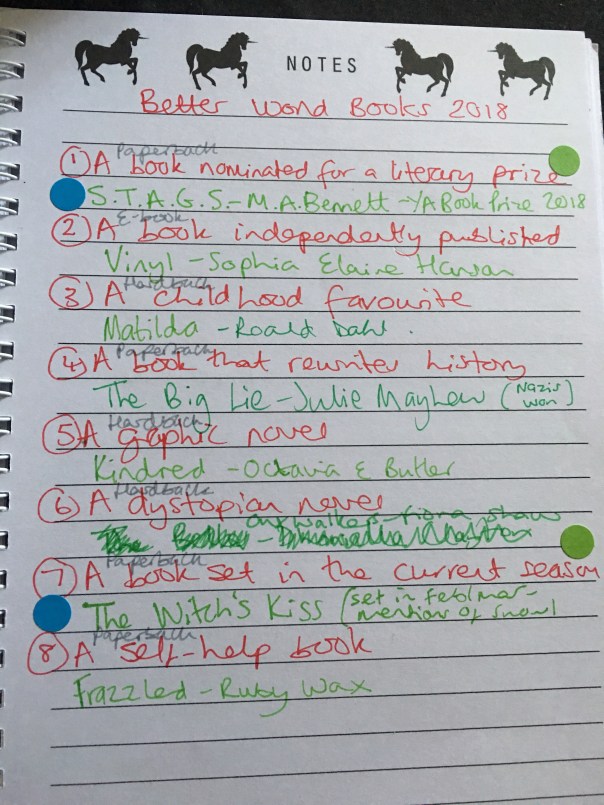 NOTES
Better Word Books 2018
Paperback
① A book nominated for a literary prize
S.T.A.G.S. - M.A.Bennett - YA Book Prize 2018
E-book
② A book independently published
Vinyl - Sophia Elaine Hanson
Hardback
③ A childhood favourite
Matilda - Roald Dahl.
Paperback
④ A book that rewrites history
The Big Lie - Julie Mayhew (Nazis won)
Hardback
⑤ A graphic novel
Kindred - Octavia E Butler
Hardback
⑥ A dystopian novel
Outwalkers - Fiona Shaw
Paperback
⑦ A book set in the current season
The Witch's Kiss (set in feb/mar - mention of snow)
Paperback
⑧ A self-help book
Frazzled - Ruby Wax